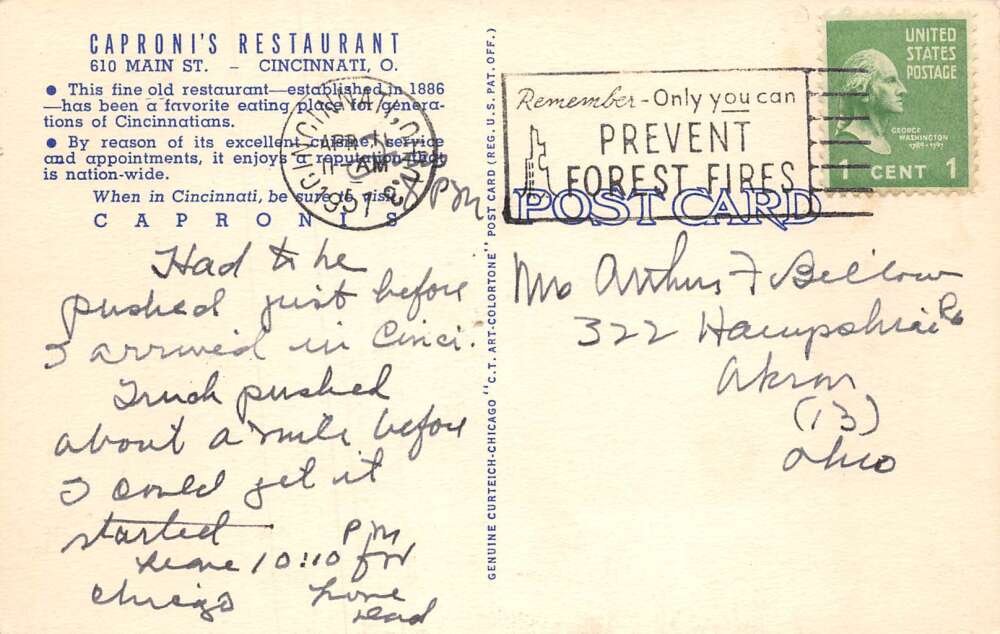 CAPRONI'S RESTAURANT
610 MAIN ST. – CINCINNATI, O.
● This fine old restaurant—established in 1886
—has been a favorite eating place for genera-
tions of Cincinnatians.
● By reason of its excellent cuisine, service
and appointments, it enjoys a reputation that
is nation-wide.
When in Cincinnati, be sure to visit
CAPRONI'S
CINCINNATI, OHIO
APR
11 AM
1951
PM
Had to be
pushed just before
I arrived in Cinci.
Truck pushed
about a mile before
I could get it
started
Leave 10:10 PM for
Chicago Love
Dad
GENUINE CURTEICH-CHICAGO "C.T. ART-COLORTONE" POST CARD (REG. U.S. PAT. OFF.)
Remember-Only you can
PREVENT
FOREST FIRES
POST CARD
UNITED
STATES
POSTAGE
GEORGE
WASHINGTON
1789-1797
1 CENT 1
Mrs Arthur F Bellow
322 Hampshire Rd
Akron
(13)
Ohio